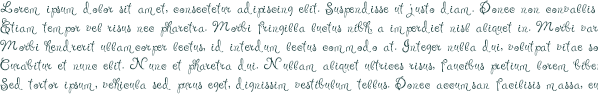 Lorem ipsum dolor sit amet, consectetur adipiscing elit. Suspendisse ut justo diam. Donec non convallis
Etiam tempor vel risus nec pharetra. Morbi fringilla luctus nibh a imperdiet nisl aliquet in. Morbi var
Morbi hendrerit ullamcorper lectus, id interdum lectus commodo at. Integer nulla dui, volutpat vitae so
Curabitur et nunc elit. Nunc et pharetra dui. Nullam aliquet ultrices risus, faucibus pretium lorem bibe
Sed tortor ipsum, vehicula sed purus eget, dignissim vestibulum tellus. Donec accumsan facilisis massa, eu